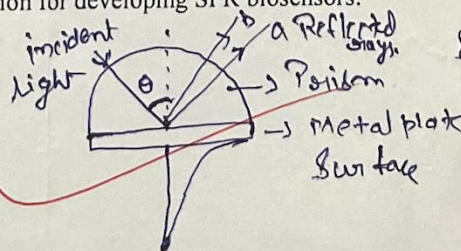 ion for developing SPR biosensors.
incident
light
θ
b
a Reflected
rays.
→ Prism
→ Metal plate
Surface